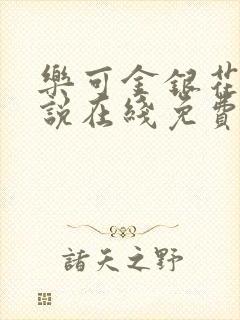 樂可金銀花
說在綫免費
諸天之野